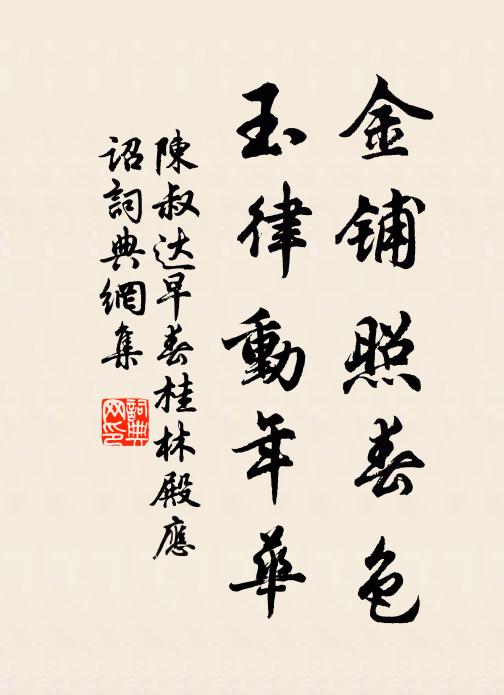 金铺照春色
玉律動年華
陳叔达早春桂林殿應
詔詞典網集
詞典
网印